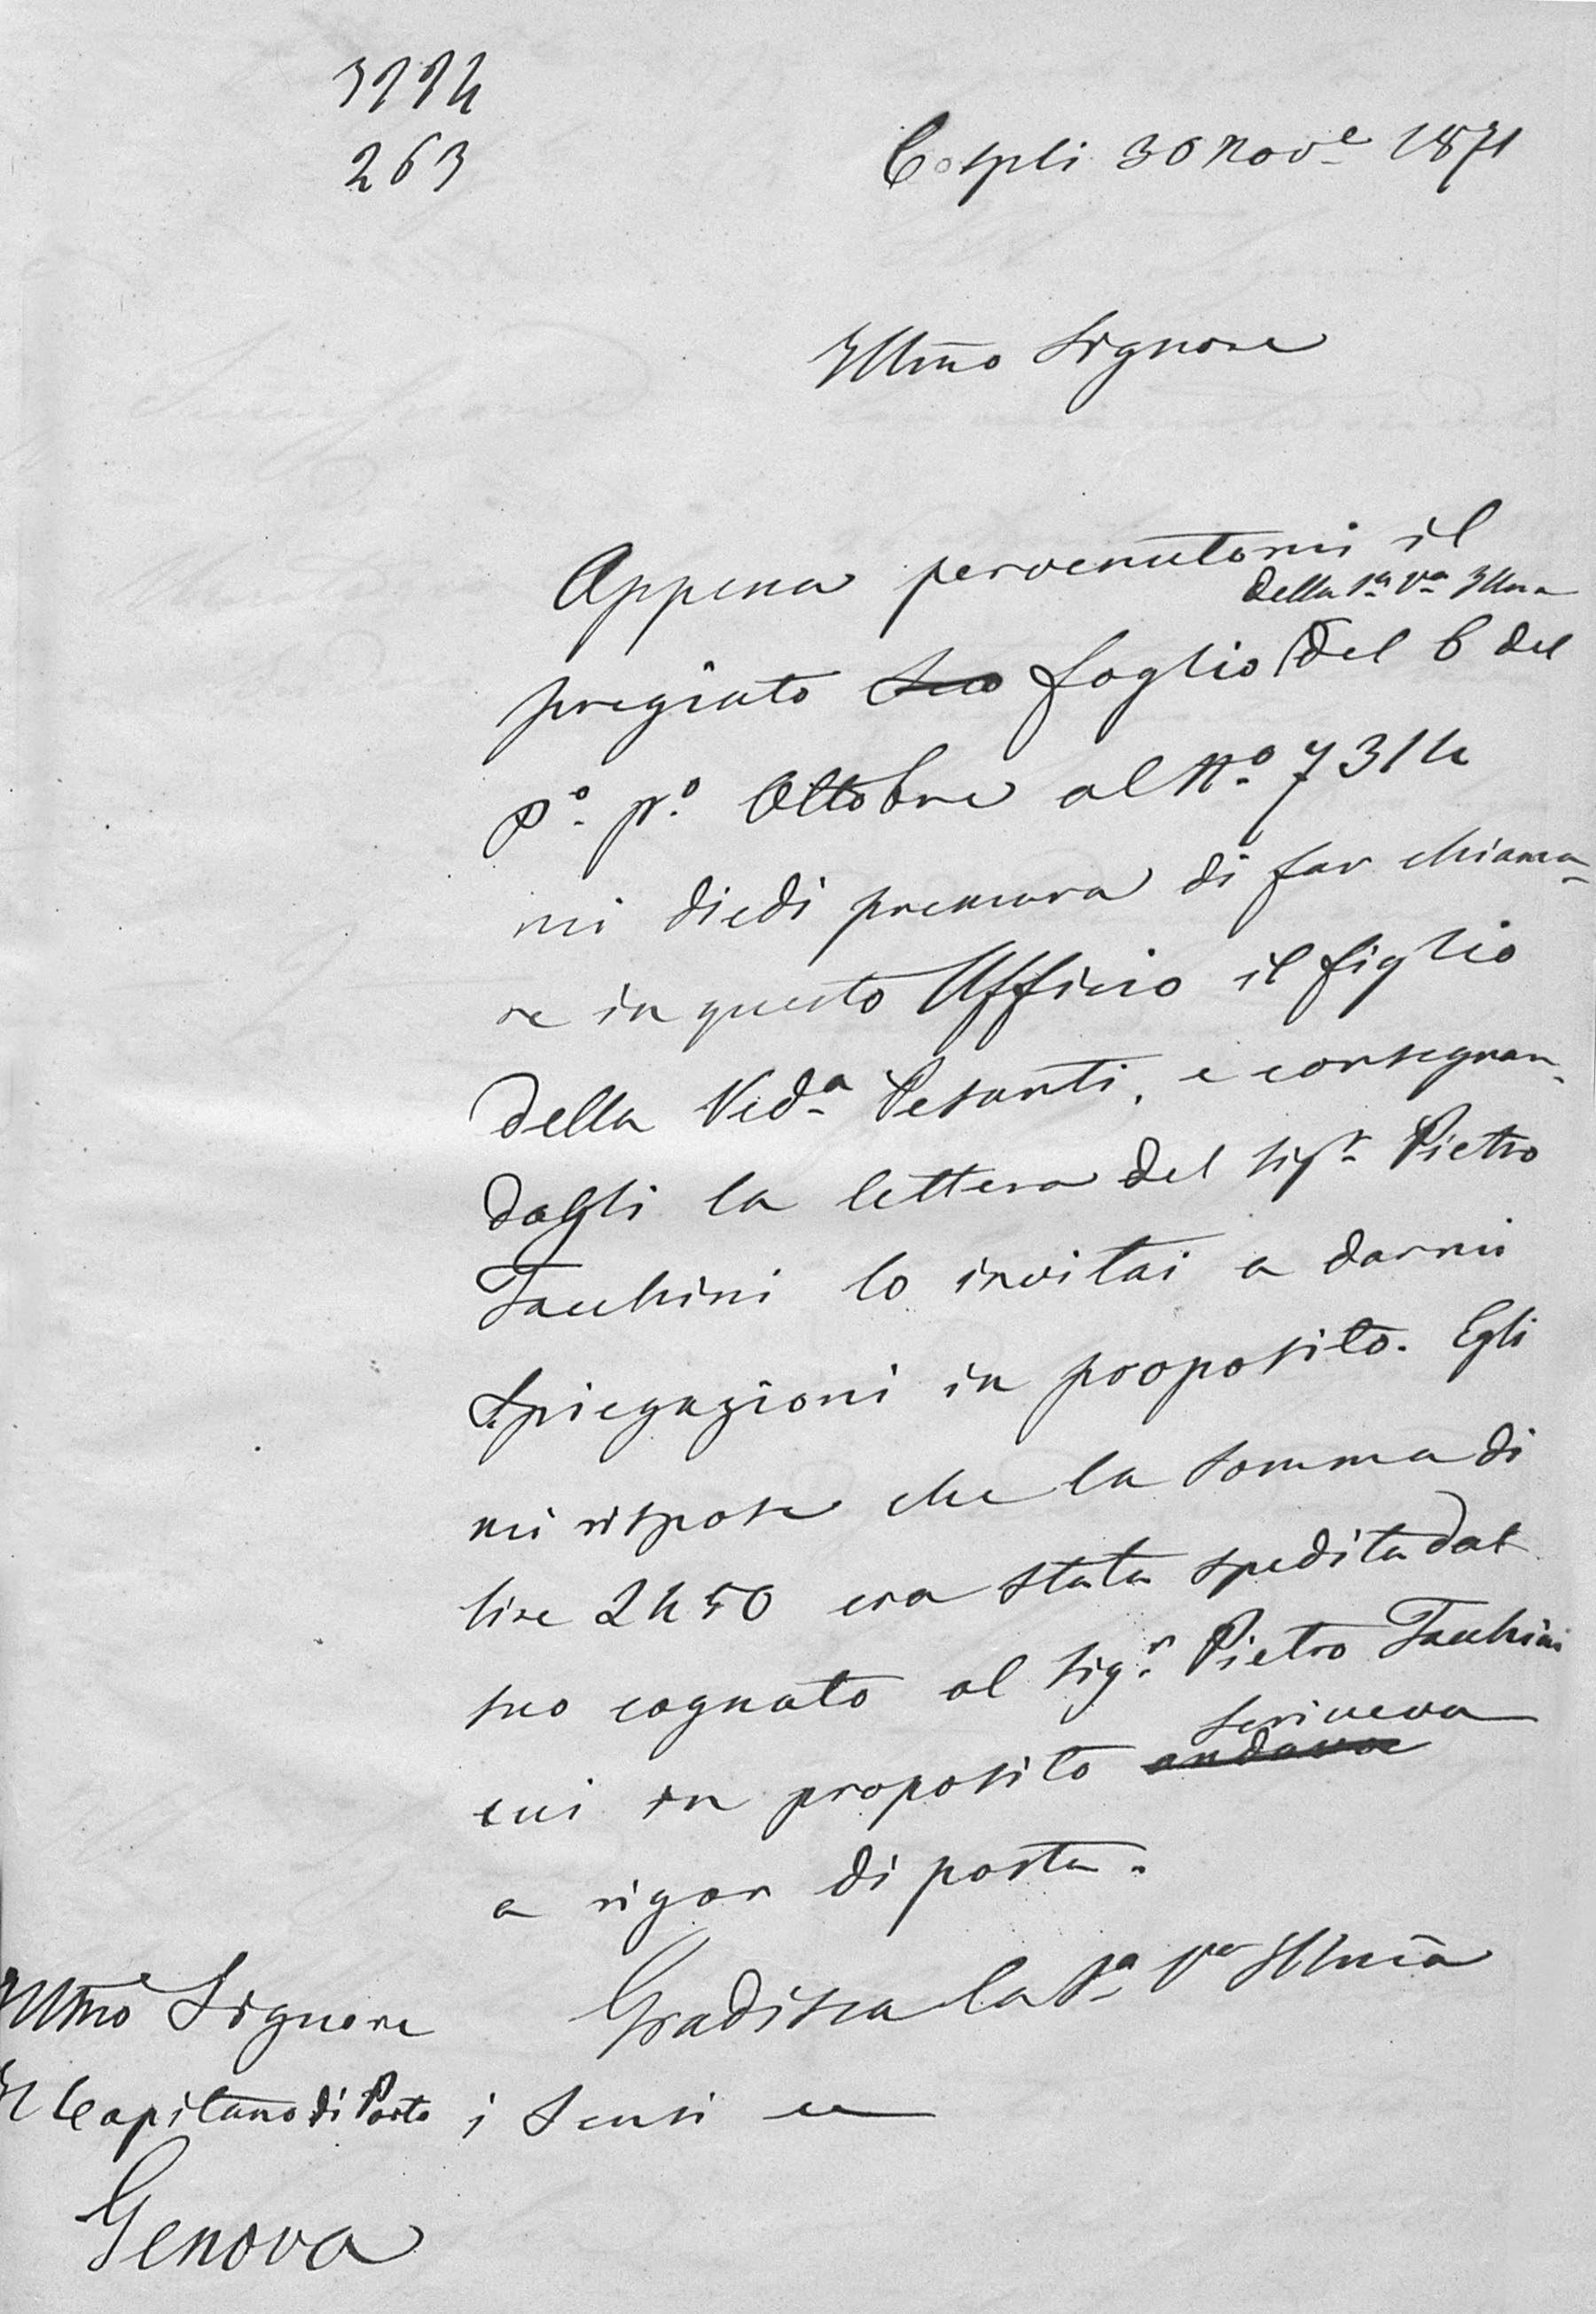 3994
263
Cospli 30 Nov.e 1871
Illmo Signore
Appena pervenutomi il
della S.a V.a Illma
pregiato suo foglio del 6 del
p.o p.o Ottobre al N.o 7314
mi diedi premura di far chiama-
re in questo Ufficio il figlio
della Ved.a Pesanti, e consegnan-
dogli la lettera del Sig.r Pietro
Tacchini lo invitai a darmi
spiegazioni in proposito. Egli
mi rispose che la somma di
lire 2450 era stata spedita dal
suo cognato al Sig.r Pietro Tacchini
scriveva
cui in proposito andava
a rigor di posta.
Gradisca la S.a V.a Illma
i sensi
Illmo Signore
Il Capitano di Porto
Genova